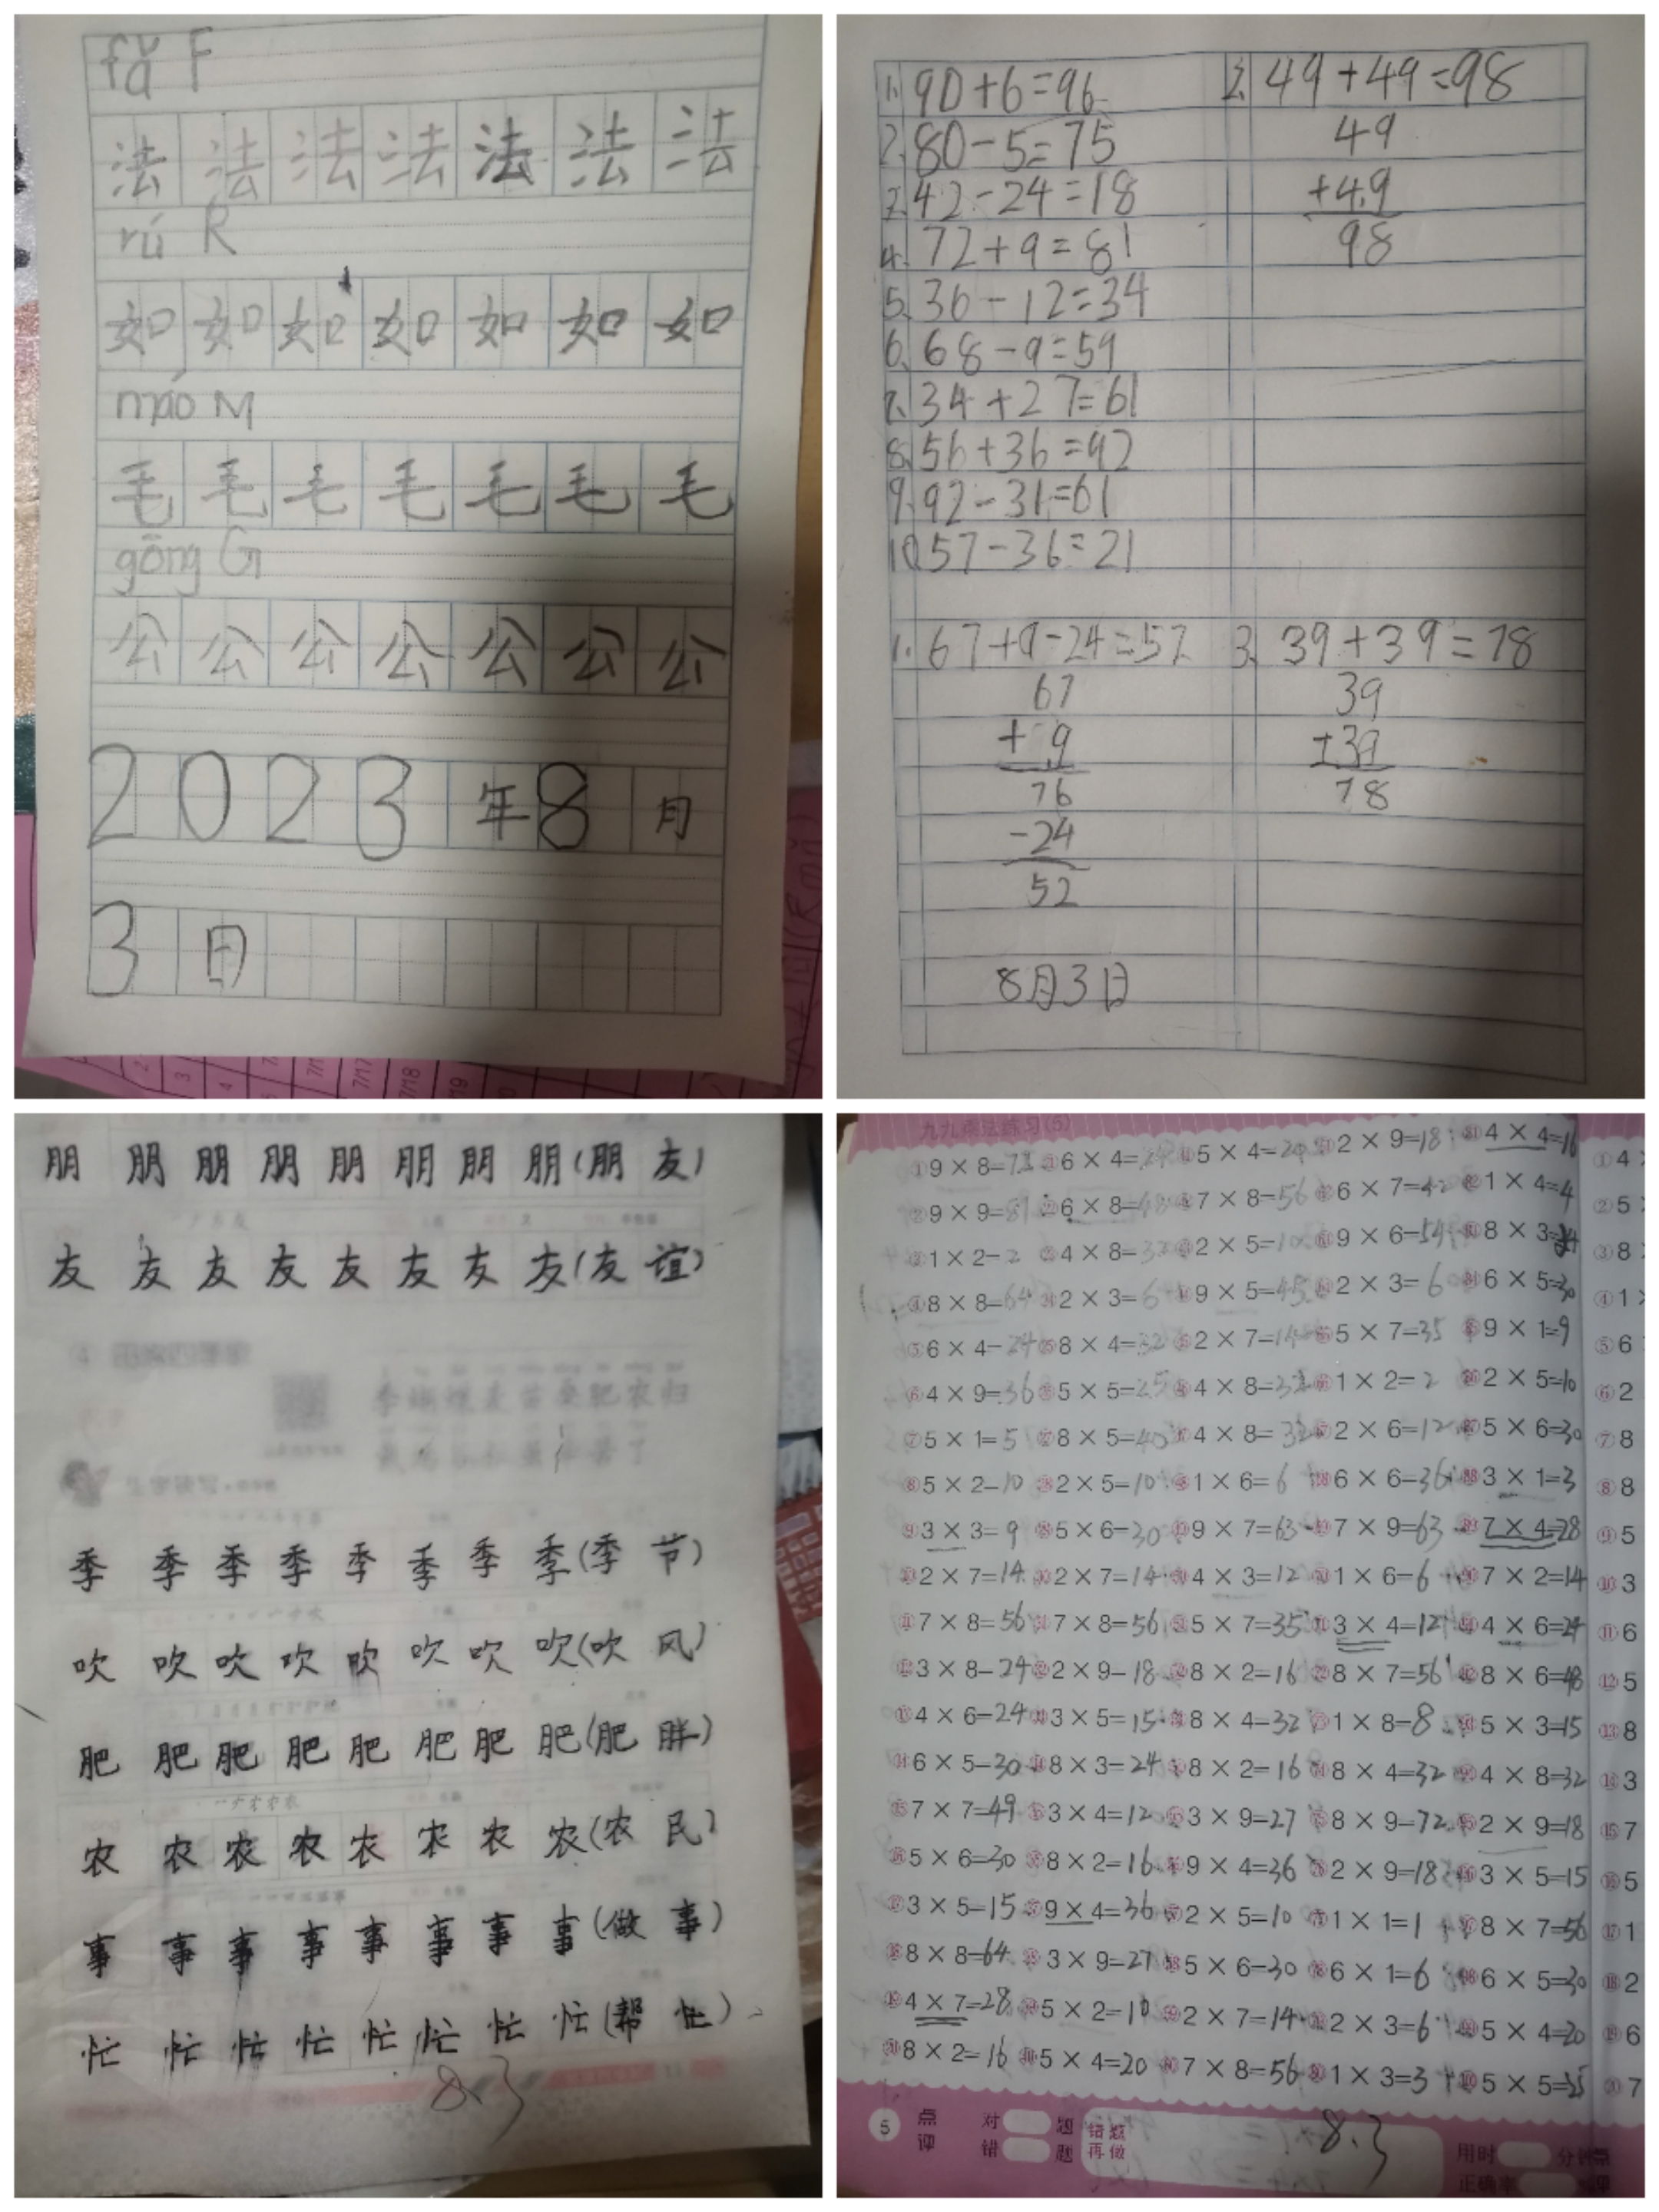 fǎ F
法 法 法 法 法 法 法
rú R
如 如 如 如 如 如 如
máo M
毛 毛 毛 毛 毛 毛 毛
gōng G
公 公 公 公 公 公 公
2023年8月
3日
7/17
7/18
1. 90+6=96
2. 80-5=75
3. 42-24=18
4. 72+9=81
5. 36-12=34
6. 68-9=59
7. 34+27=61
8. 56+36=92
9. 92-31=61
10. 57-36=21
2. 49+49=98
49
+49
98
1. 67+9-24=52
67
+ 9
76
-24
52
3. 39+39=78
39
+39
78
8月3日
朋 朋 朋 朋 朋 朋 朋 朋(朋 友)
友 友 友 友 友 友 友 友(友 谊)
季 季 季 季 季 季 季 季(季 节)
吹 吹 吹 吹 吹 吹 吹 吹(吹 风)
肥 肥 肥 肥 肥 肥 肥 肥(肥 胖)
农 农 农 农 农 农 农 农(农 民)
事 事 事 事 事 事 事 事(做 事)
忙 忙 忙 忙 忙 忙 忙 忙(帮 忙)
8.3
九九乘法练习(5)
①9×8=72 ㉑6×4=24 ㊶5×4=20 2×9=18 4×4=16 ①4
②9×9=81 6×8=48 7×8=56 6×7=42 1×4=4 ②5
③1×2=2 4×8=32 2×5=10 9×6=54 8×3=24 ③8
④8×8=64 2×3=6 9×5=45 2×3=6 6×5=30 ④1
⑤6×4=24 8×4=32 2×7=14 5×7=35 9×1=9 ⑤6
⑥4×9=36 5×5=25 4×8=32 1×2=2 2×5=10 ⑥2
⑦5×1=5 8×5=40 4×8=32 2×6=12 5×6=30 ⑦8
⑧5×2=10 2×5=10 1×6=6 6×6=36 3×1=3 ⑧8
⑨3×3=9 5×6=30 9×7=63 7×9=63 7×4=28 ⑨5
⑩2×7=14 2×7=14 4×3=12 1×6=6 7×2=14 ⑩3
⑪7×8=56 7×8=56 5×7=35 3×4=12 4×6=24 ⑪6
⑫3×8=24 2×9=18 8×2=16 8×7=56 8×6=48 ⑫5
⑬4×6=24 3×5=15 8×4=32 1×8=8 5×3=15 ⑬8
⑭6×5=30 8×3=24 8×2=16 8×4=32 4×8=32 ⑭3
⑮7×7=49 3×4=12 3×9=27 8×9=72 2×9=18 ⑮7
⑯5×6=30 8×2=16 9×4=36 2×9=18 3×5=15 ⑯5
⑰3×5=15 9×4=36 2×5=10 1×1=1 8×7=56 ⑰1
⑱8×8=64 3×9=27 5×6=30 6×1=6 6×5=30 ⑱2
⑲4×7=28 5×2=10 2×7=14 2×3=6 5×4=20 ⑲6
⑳8×2=16 5×4=20 7×8=56 1×3=3 5×5=25 ⑳7
5 点评 对 题 错 题 错题再做 8.3 用时 分钟 正确率